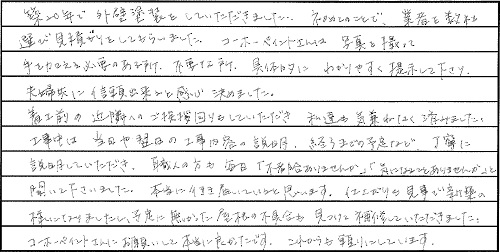 築20年で外壁塗装をしていただきました。初めてのことで、業者を数社
選び見積もりをしてもらいました。コーホーペイントさんは写真を撮って
手を加える必要のある所、不要な所、具体的にわかりやすく提示して下さり、
夫婦共に信頼出来ると感じ決めました。
着工前の近隣へのご挨拶回りもしていただき私達も気兼ねなく済みました。
工事中は当日や翌日の工事内容の説明、終了までの予定など、丁寧に
説明していただき、職人の方も毎日「不具合ありませんか」「気になることありませんか」と
聞いて下さいました。本当に行き届いていると思います。仕上がりも見事で新築の
様になりましたし、予定に無かった屋根の不具合も見つけて補修していただきました。
コーホーペイントさんにお願いして本当に良かったです。これからも頼りにしています。